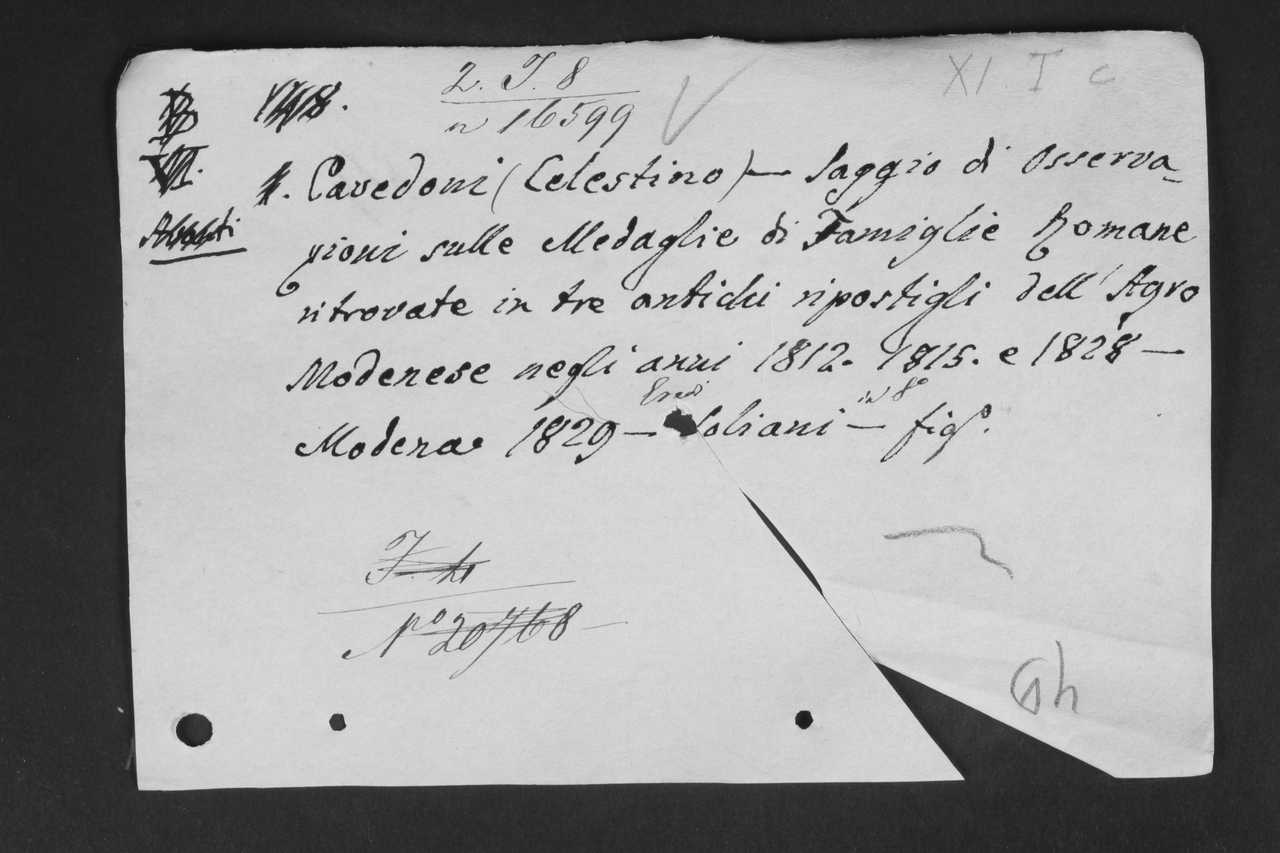 2. I. 8
XI. I c
n 16599
VII.
1. Cavedoni (Celestino) — Saggio di Osserva_
zioni sulle Medaglie di Famiglie Romane
ritrovate in tre antichi ripostigli dell'Agro
Modenese negli anni 1812. 1815. e 1828 —
Eredi in 8º
Modena 1829 — Soliani — figº.
I. 4
Nº 20768
Gh